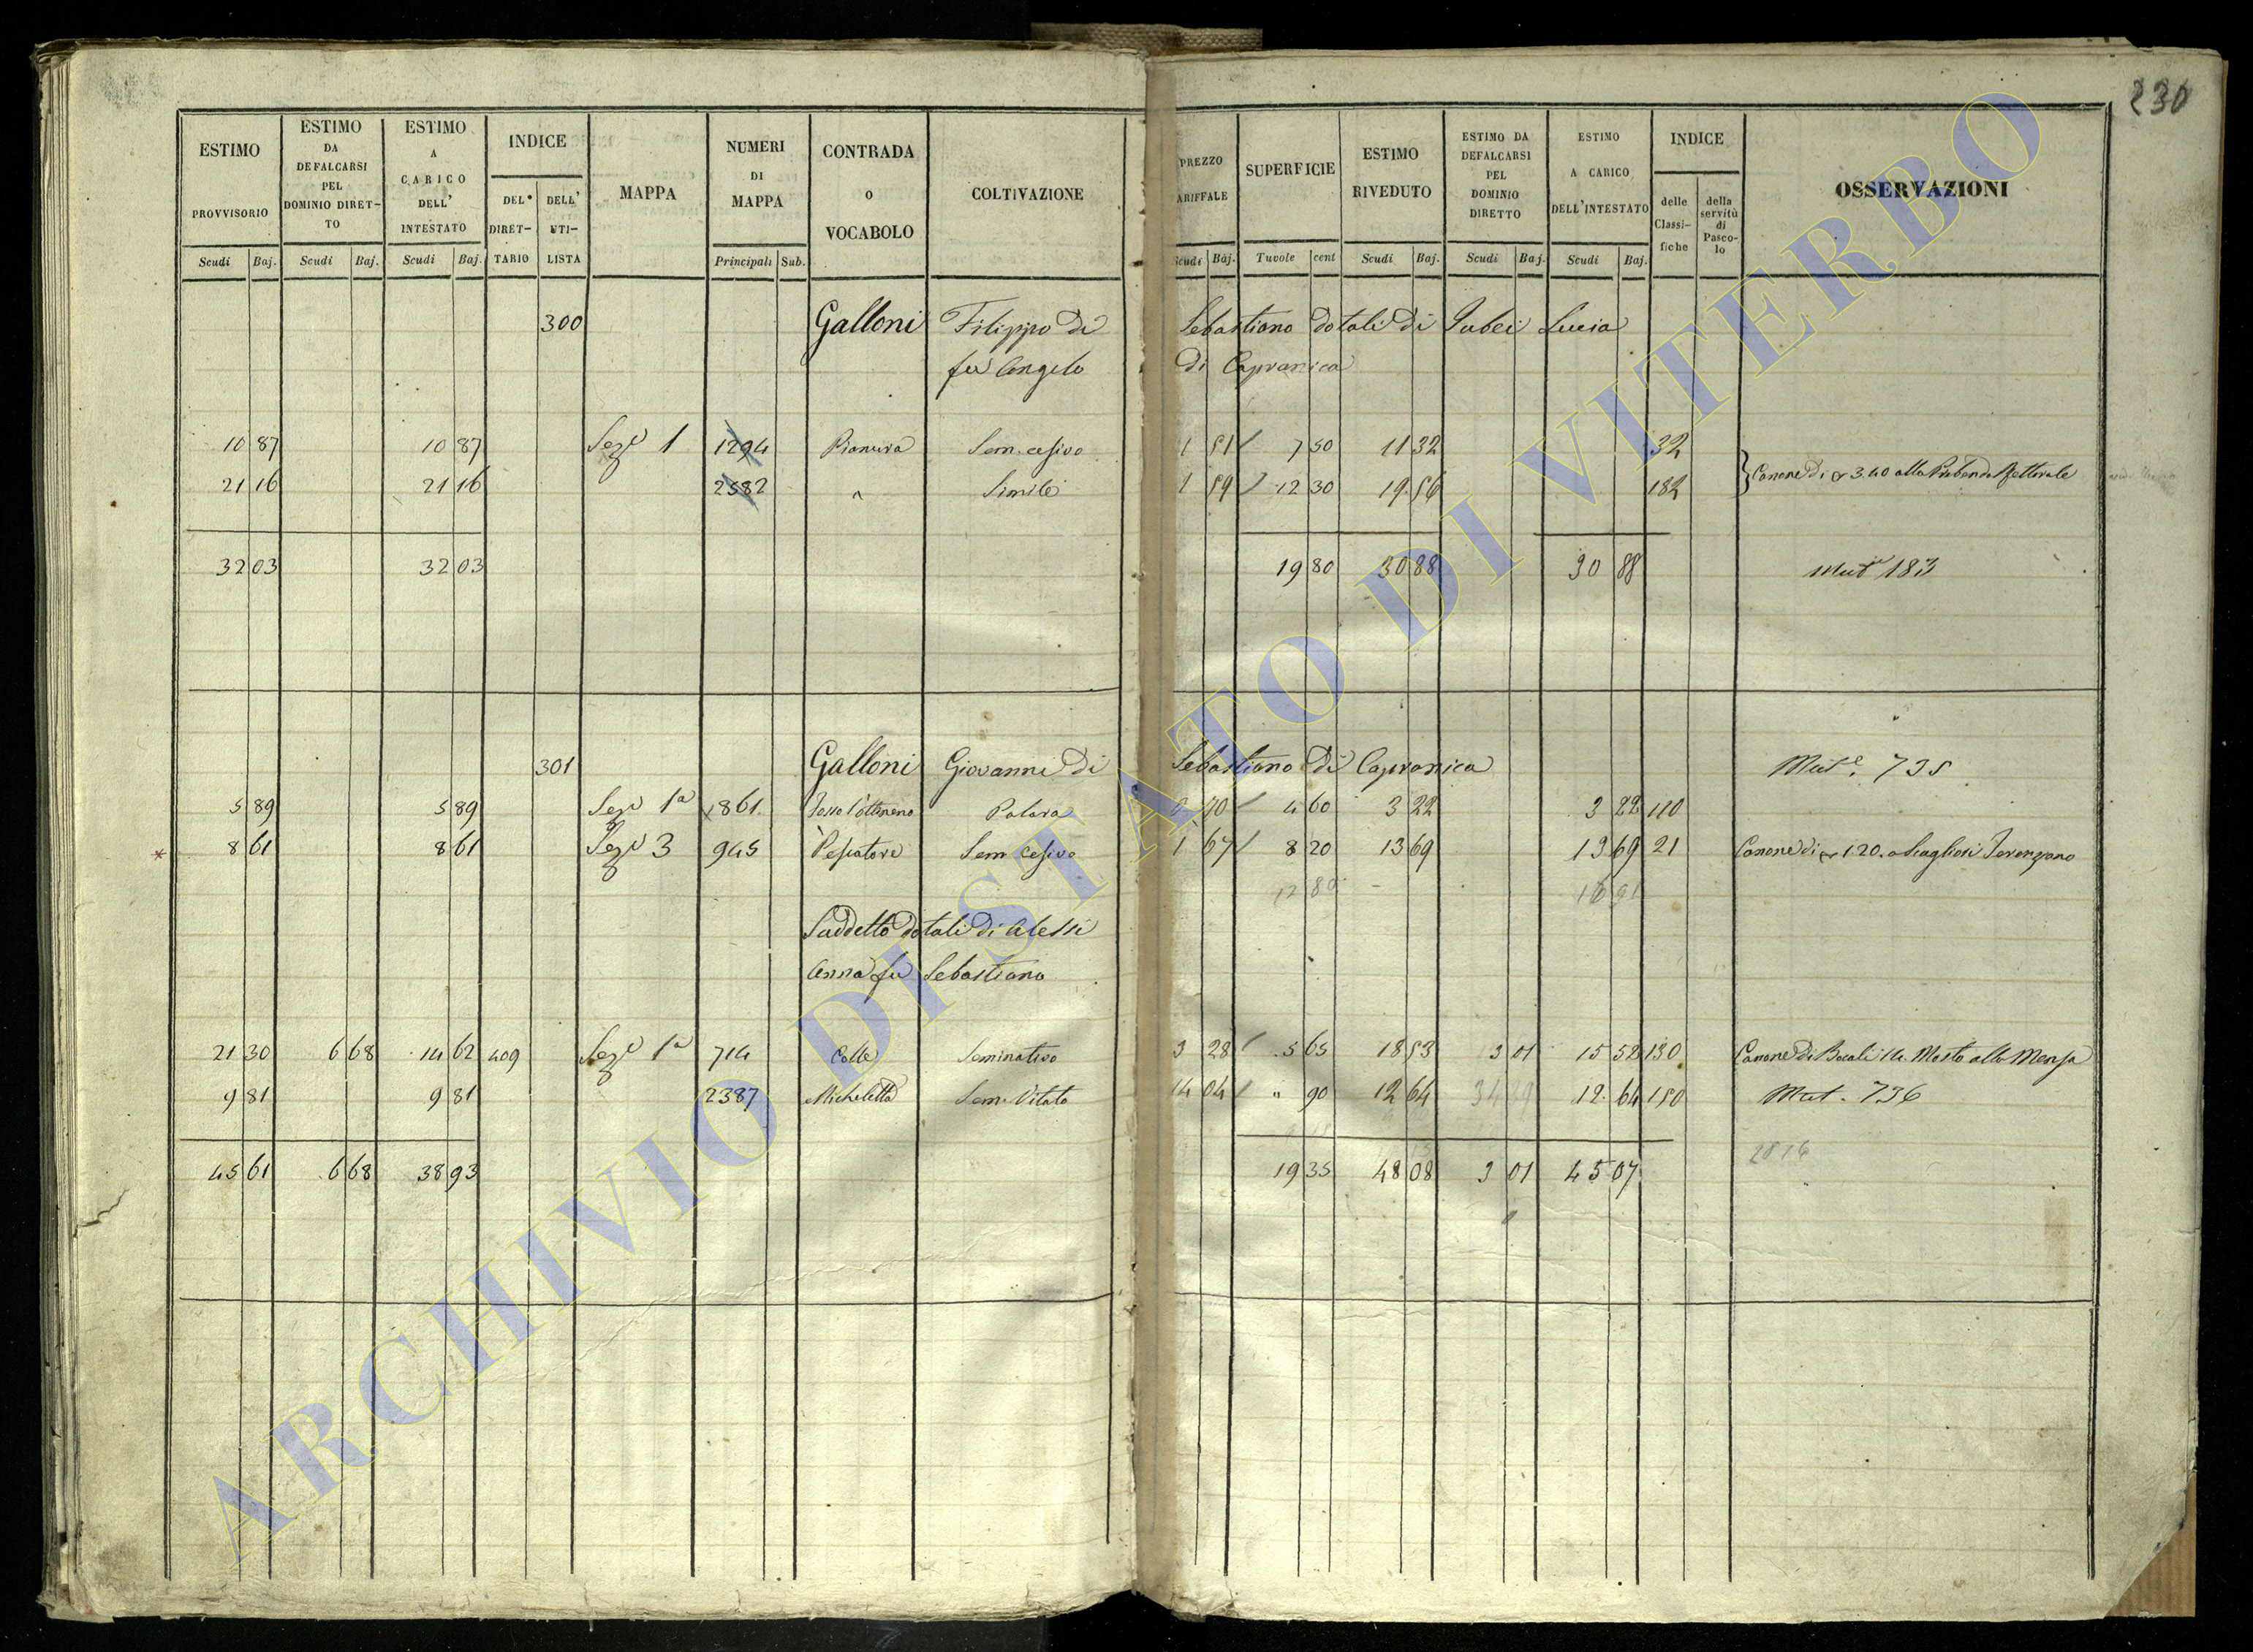 230
ESTIMO PROVVISORIO Scudi Baj. ESTIMO DA DEFALCARSI PEL DOMINIO DIRET-TO Scudi Baj. ESTIMO A CARICO DELL' INTESTATO Scudi Baj. INDICE DEL DIRET-TARIO DELL' UTI-LISTA MAPPA NUMERI DI MAPPA Principali Sub. CONTRADA o VOCABOLO COLTIVAZIONE PREZZO ARIFFALE Scudi Baj. SUPERFICIE Tavole cent ESTIMO RIVEDUTO Scudi Baj. ESTIMO DA DEFALCARSI PEL DOMINIO DIRETTO Scudi Baj. ESTIMO A CARICO DELL'INTESTATO Scudi Baj. INDICE delle Classi-fiche della servitù di Pasco-lo OSSERVAZIONI
300 Galloni Filippo di Sebastiano dotali di Lucia
fu Angelo di Capranica
10 87 10 87 Seze 1 1294 Pianura Sem. cesivo 1 51 7 50 11 32 32
21 16 21 16 2582 " Simile 1 59 12 30 19 56 182 Canone di 3.40 alla Prebenda Rettorale
32 03 32 03 19 80 30 88 30 88 Mut 183
301 Galloni Giovanni di Sebastiano di Capranica Mut. 735
5 89 5 89 Seze 1a 1861 Fosso Palara 70 4 60 3 22 3 22 110
* 8 61 8 61 Seze 3 945 Pescatore Sem cesivo 1 67 8 20 13 69 13 69 21 Canone di 1.20. a
12 80 16 91
Suddetto dotali di Alessi
Anna fu Sebastiano
21 30 6 68 14 62 409 Seze 1a 714 Colle Seminativo 3 28 5 65 18 53 3 01 15 52 130 Canone di Bocali 14. Mosto alla Mensa
9 81 9 81 2387 Micheletta Sem. Vitato 14 04 " 90 12 64 12 64 150 Mut. 736
28 16
45 61 6 68 38 93 19 35 48 08 3 01 45 07
ARCHIVIO DI STATO DI VITERBO